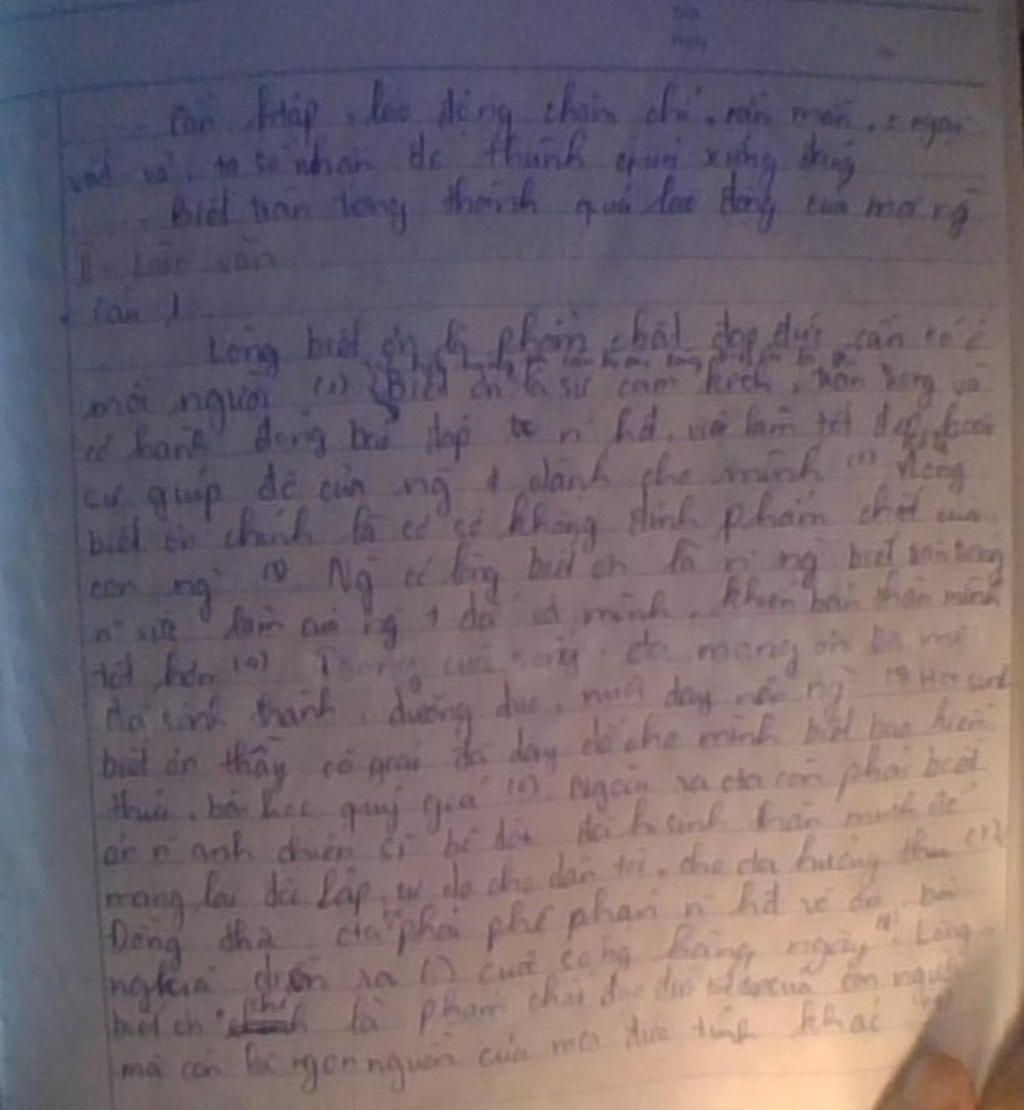 - Cần , lao động chăm chỉ, , ngại
vất vả, ta sẽ nhận đc thành quả xứng đáng
- Biết trân trọng thành quả lao động của mọi ng
II - Làm văn
Câu 1
Lòng biết ơn là phẩm chất đạo đức cần có ở
mỗi người (1) Biết ơn là sự cảm kích, trân trọng và
có hành động báo đáp n hđ, việc làm tốt đẹp,
sự giúp đỡ của ng # dành cho mình (2) Lòng
biết ơn chính là cơ sở khẳng định phẩm chất của
con ng (3) Ng có lòng biết ơn là n ng biết trân trọng
n việc làm của ng # đối với mình, khiến bản thân mình
tốt hơn (4) Trong cuộc sống, cta mang ơn ba mẹ
đã sinh thành, dưỡng dục, nuôi dạy nên ng (5) Học sinh
biết ơn thầy cô giáo đã dạy dỗ cho mình biết bao kiến
thức, bài học quý giá (6). Ngoài ra cta còn phải biết
ơn n anh chiến sĩ bộ đội đã hi sinh thân mình để
mang lại độc lập, tự do cho dân tộc, cho cta hưởng thụ (7)
Đồng thời, cta phải phê phán n hđ vô ơn, bội
nghĩa diễn ra () cuộc sống hằng ngày (8). Lòng
biết ơn là phẩm chất đạo đức của con người
mà còn là ngọn nguồn của mọi đức tính khác